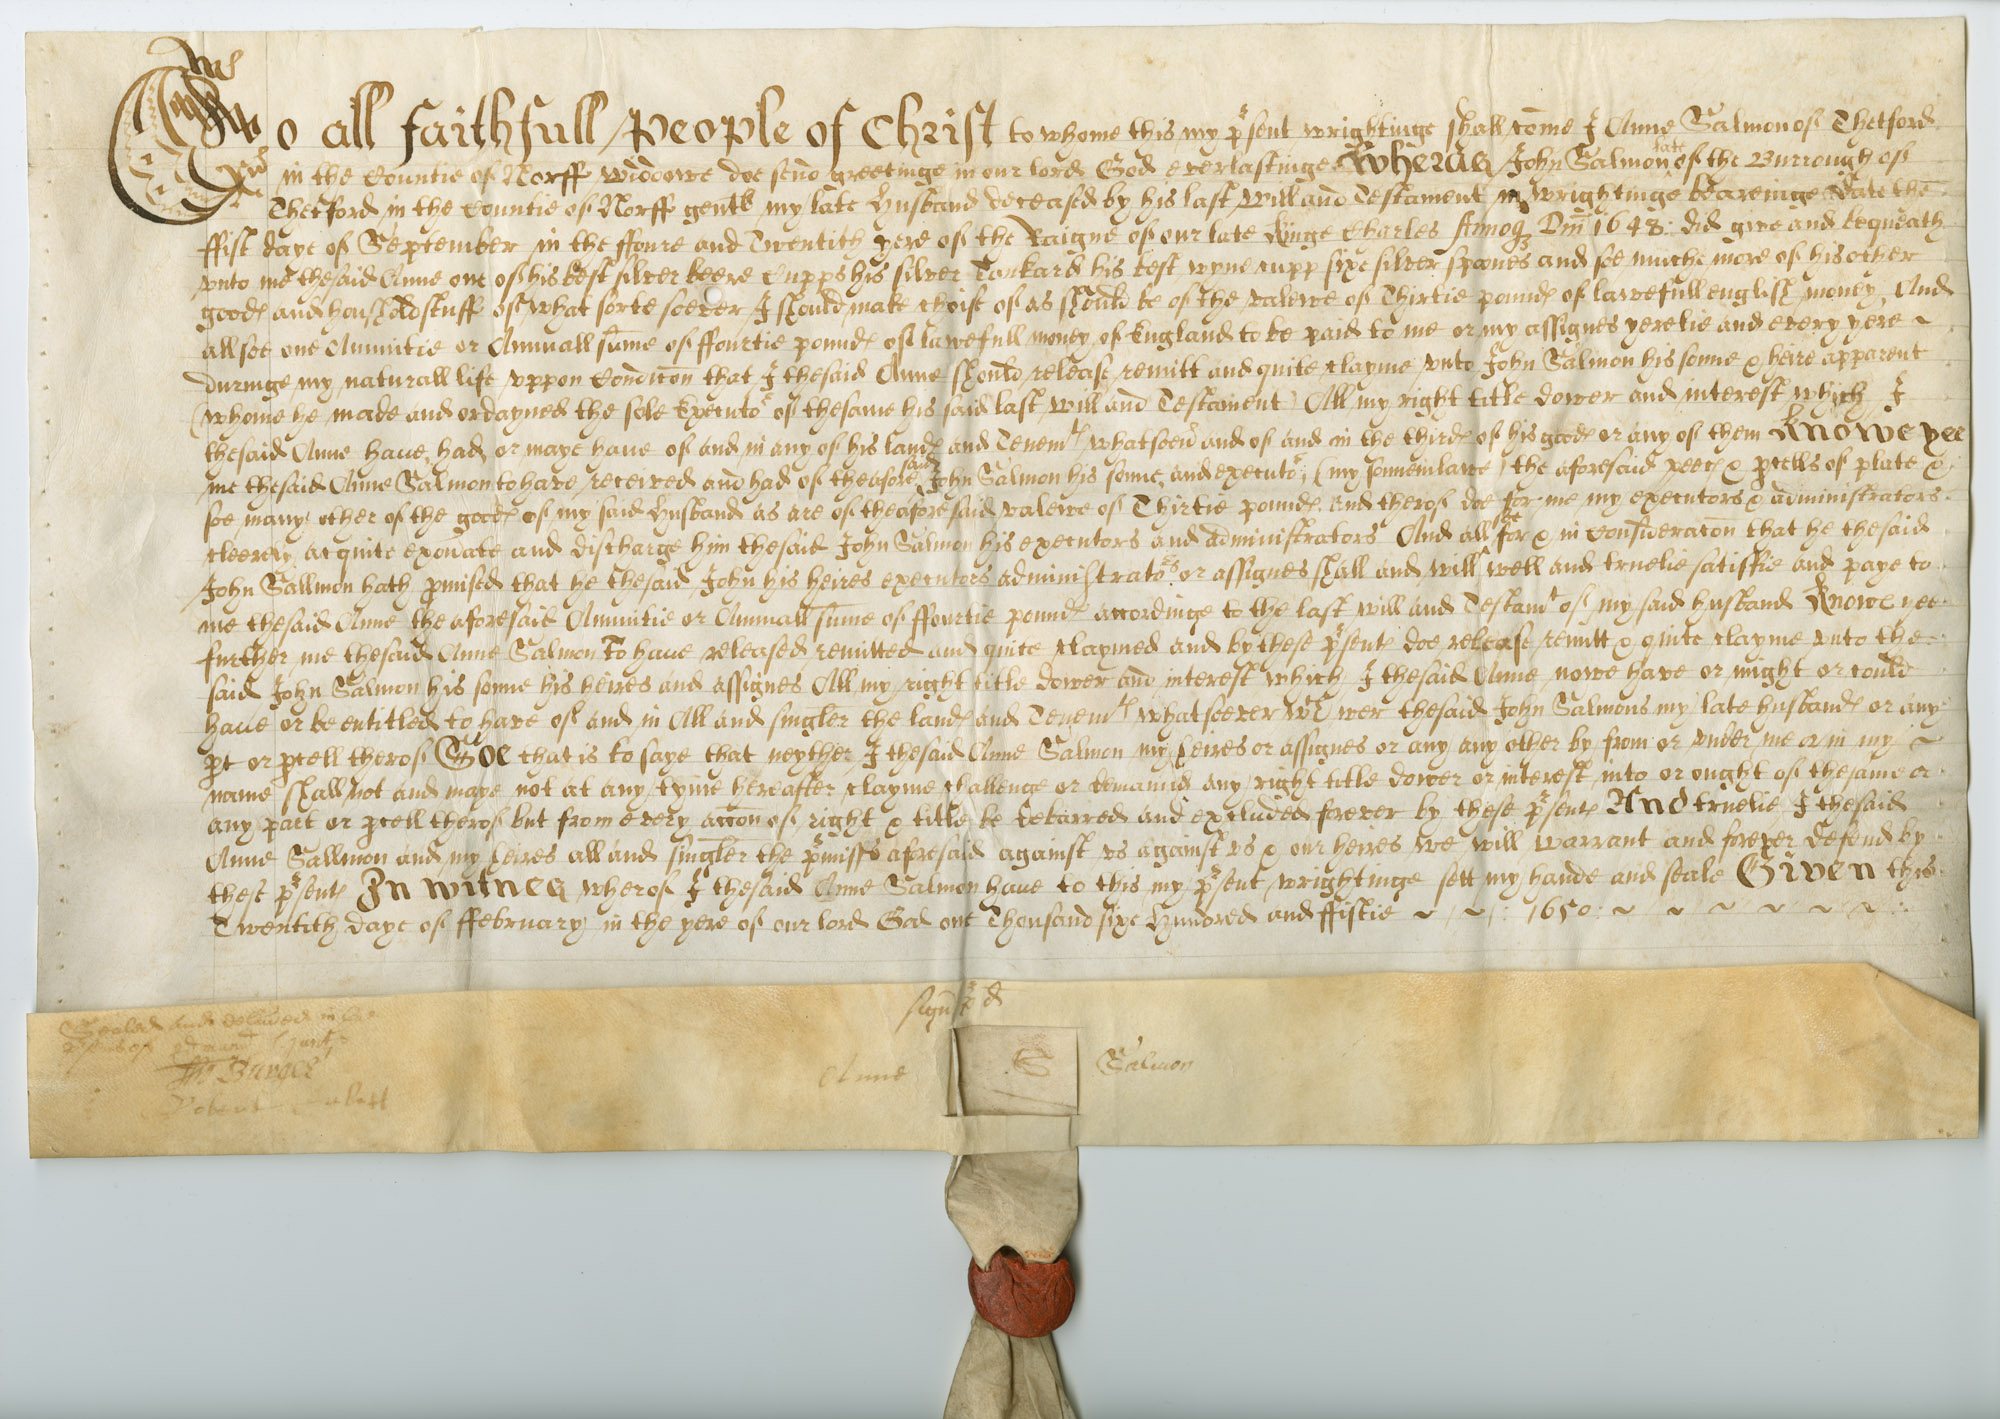 To all faithfull people of Christ to whome this my p'sent wrightinge shall come I Anne Salmon of Thetford
in the Countie of Norff widdowe doe send greetinge in our lord God everlastinge Wheras John Salmon late of the Burrough of
Thetford in the Countie of Norff gentl my late Husband deceased by his last will and Testament in wrightinge beareinge date the
ffist daye of September in the ffoure and Twentith yere of the Raigne of our late Kinge Charles Annoq Dm 1648: did give and bequeath
vnto me thesaid Anne one of his best silver beere Cupps his silver Tankard his best wyne cupp sixe silver spoones and soe muche more of his other
goods and houshold stuff of what sorte soever I should make choise of as should be of the valewe of Thirtie pounds of lawefull english money And
allsoe one Annuitie or Annuall sume of ffourtie pounds of lawefull money of England to be paid to me or my assignes yerelie and every yere ~
duringe my naturall life vppon Condicon that I thesaid Anne should release remitt and quite clayme vnto John Salmon his sonne & heire apparent
(whome he made and ordayned the sole Executor of thesame his said last will and Testament) All my right title dower and interest which I
thesaid Anne haue had or maye haue of and in any of his lands and Tenemts whatsoeu' and of and in the thirds of his goods or any of them Knowe yee
me thesaid Anne Salmon to have received and had of theafore said John Salmon his sonne and executor, (my sonneinlawe) the aforesaid peecs & pcells of plate &
soe many other of the goods of my said Husband as are of theaforesaid valewe of Thirtie pounds and therof doe for me my executors & administrators
cleerely acquite exonate and discharge him thesaid John Salmon his executors and administrators And all soe for & in Consideracon that he thesaid
John Sallmon hath pmised that he thesaid John his heires executors administrators or assignes shall and will well and truelie satisfie and paye to
me thesaid Anne the aforesaid Annuitie or Annuall sume of ffourtie pounds accordinge to the last will and Testamt of my said husband Knowe yee
further me thesaid Anne Salmon to haue released remitted and quite claymed and by these p'sents doe release remitt & quite clayme vnto the
said John Salmon his sonne his heires and assignes All my right title dower and interest which I thesaid Anne nowe have or might or could
haue or be entitled to have of and in All and singler the lands and Tenemts whatsoever wch wer thesaid John Salmons my late husbands or any
pt or pcell therof Soe that is to saye that neyther I thesaid Anne Salmon my heires or assignes or any any other by from or vnder me or in my ~
name shall not and maye not at any tyme hereafter clayme challenge or demaund any right title dower or interest into or ought of thesame or
any part or pcell therof but from every accon of right & title be debarred and excluded forever by these p'sents And truelie I thesaid
Anne Sallmon and my heires all and singler the p'misss aforesaid against vs against vs & our heires we will warrant and forever defend by
these p'sents In witnes wherof I thesaid Anne Salmon haue to this my p'sent wrightinge sett my hande and seale Given this
Twentith daye of ffebruary in the yere of our lord God one Thousand sixe Hundred and ffiftie ~ ~ : 1650: ~ ~ ~ ~ ~ ~
Sealed and delivered in the
Anne S Salmon